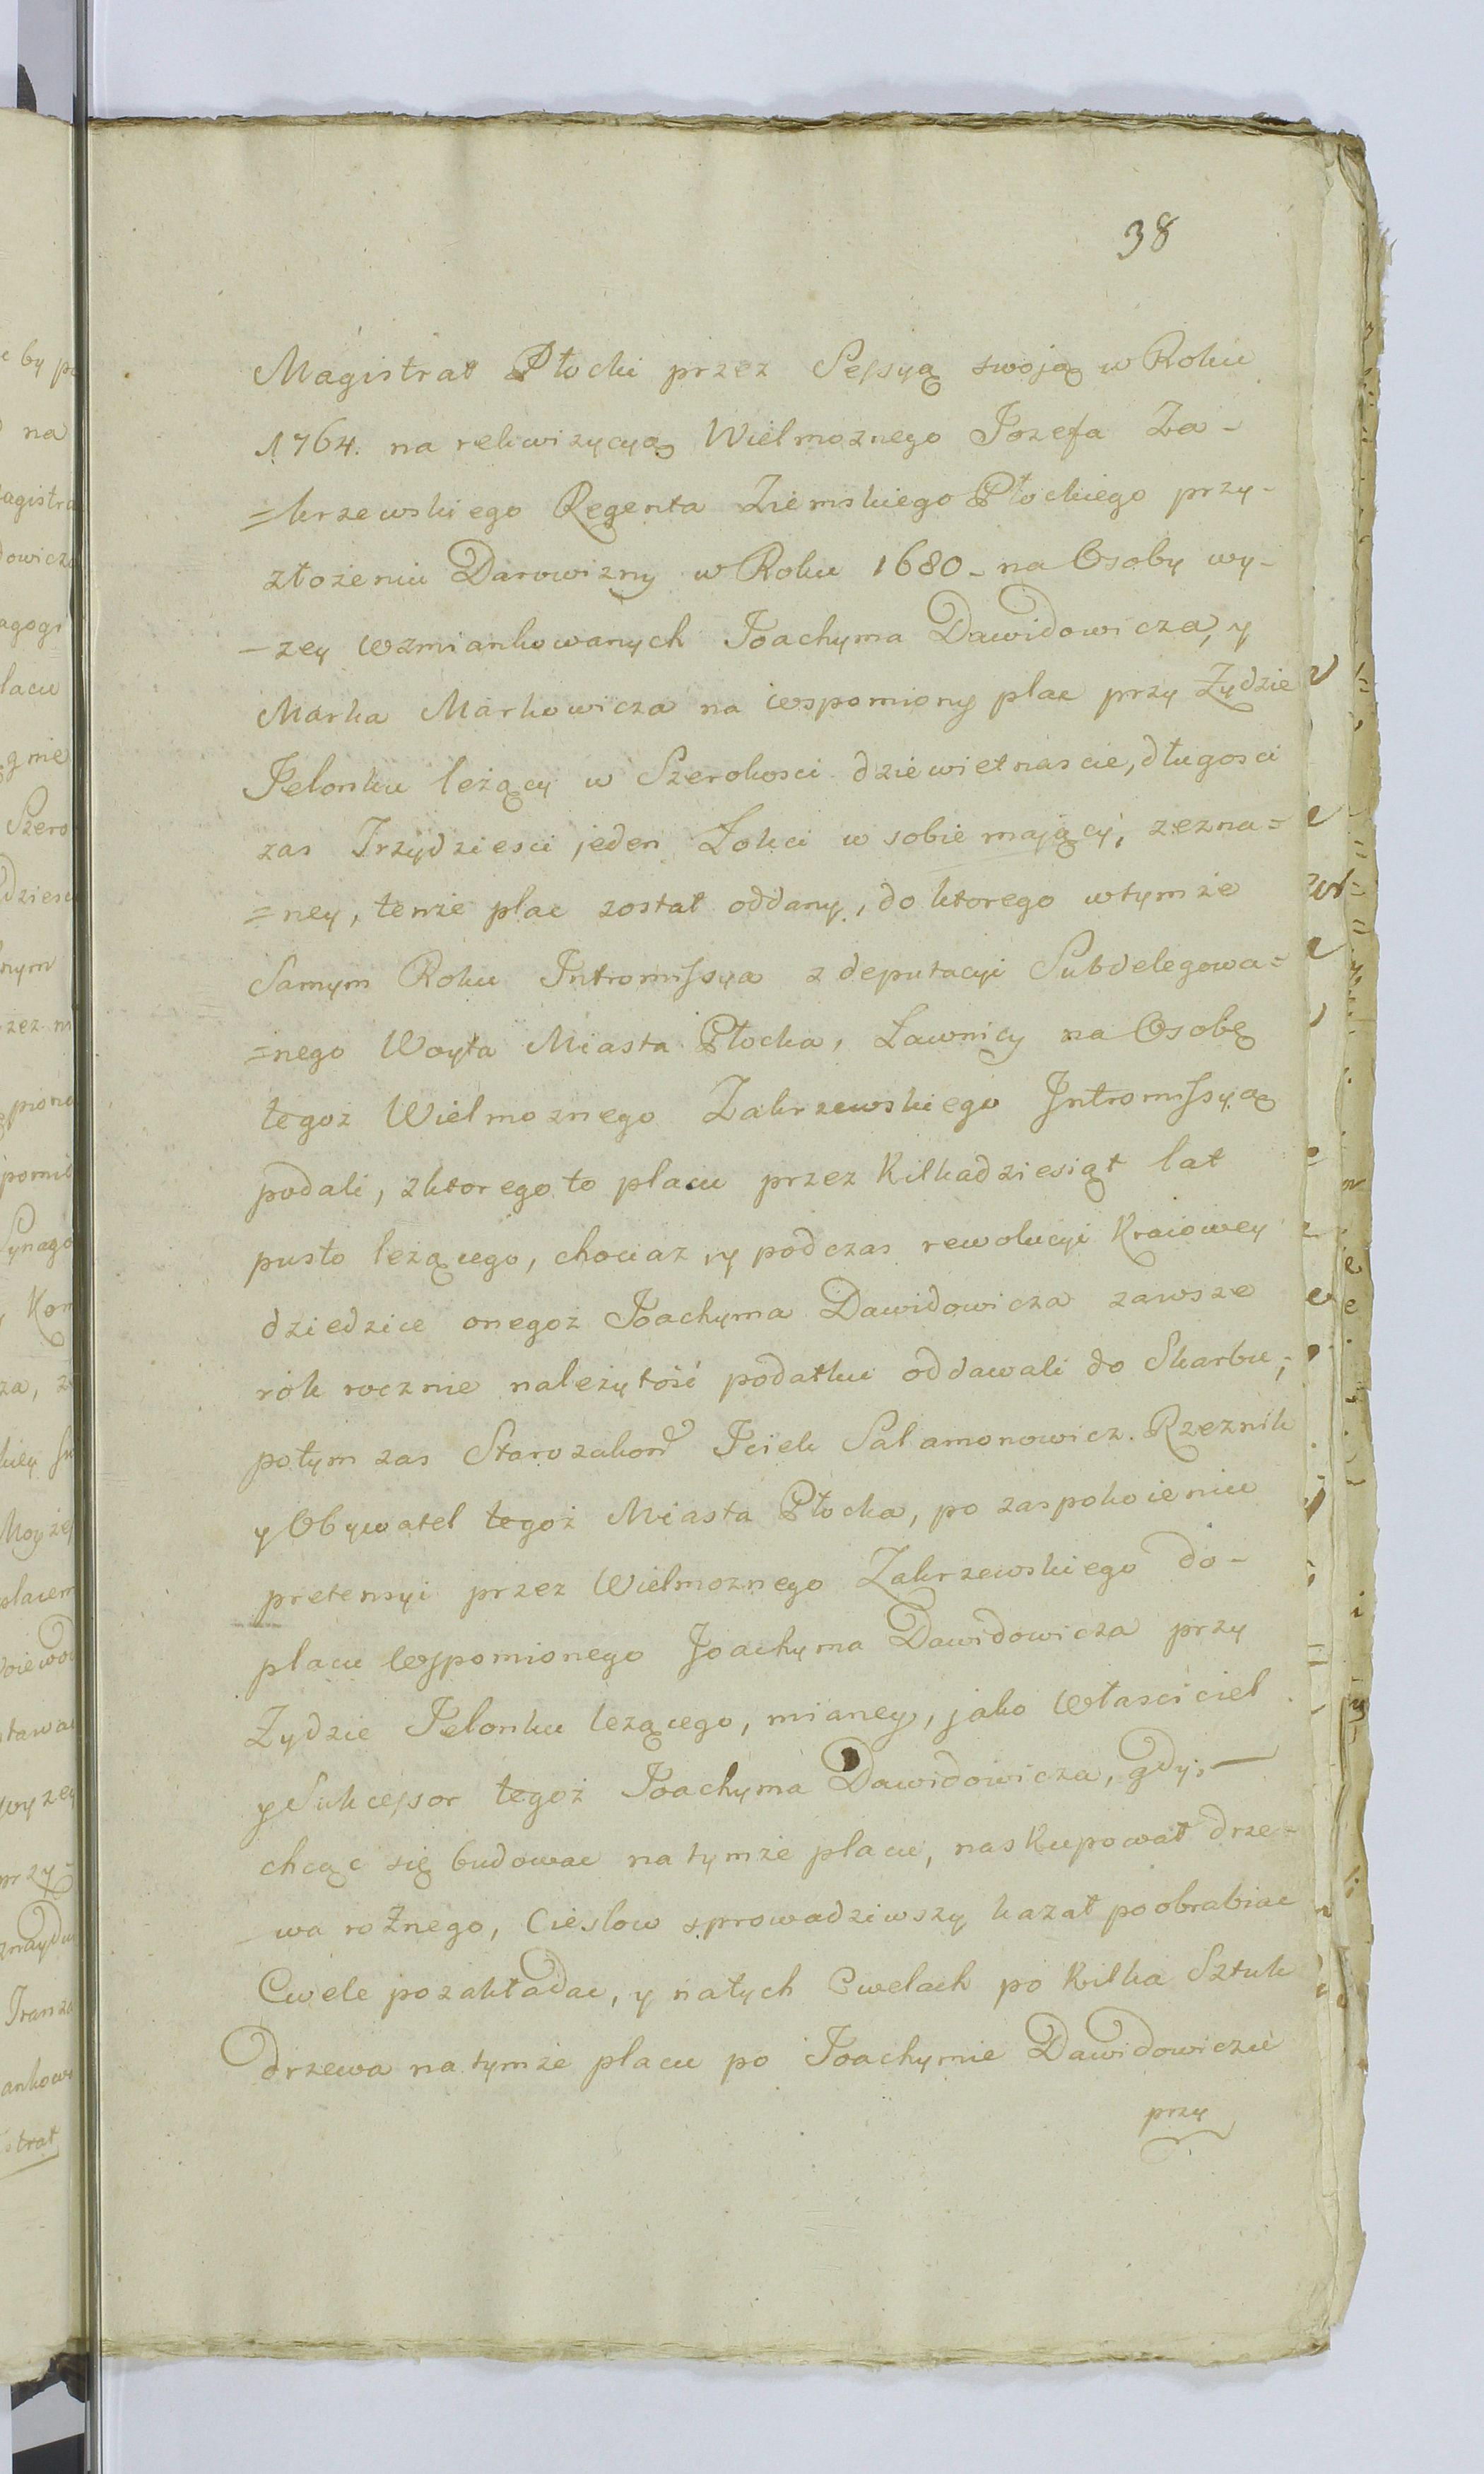 38
Magistrat Płocki przez Sessyą swoją w Roku
1764. na rekwizycyą Wielmoznego Jozefa Za-
=krzewskiego Regenta Ziemskiego Płockiego przy-
złożeniu Darowizny w Roku 1680 - na Osoby wy-
-zey wzmiankowanych Joachyma Dawidowicza, y
Marka Markowicza na wspomiony plac przy Zydzie
Jelonku leżący w Szerokosci dziewietnascie, długosci
zas Trzydziesci jeden Łokci w sobie mający, zezna=
=ney, tenże plac został oddany, do ktorego w tymże
Samym Roku Intromissya z deputacyi Subdelegowa=
=nego Woyta Miasta Płocka, Ławnicy na Osobę
tegoz Wielmoznego Zakrzewskiego Intromissyą
podali, z ktorego to placu przez Kilkadziesiąt lat
pusto leżącego, chociaz y podczas rewolucyi Kraiowey
dziedzice onegoz Joachyma Dawidowicza zawsze
rok rocznie należytość podatku oddawali do Skarbu,
potym zas Starozakon Iciek Salamonowicz. Rzeznik
y Obywatel tegoż Miasta Płocka, po zaspokoieniu
pretensyi przez Wielmoznego Zakrzewskiego do-
placu wspomionego Joachyma Dawidowicza przy
Zydzie Jelonku lezącego, mianey, jako Własciciel
y Sukcessor tegoż Joachyma Dawidowicza, gdy, -
chcąc się budowac na tymże placu, naskupował drze-
wa rożnego, Cieslow sprowadziwszy kazał poobrabiac
Cwele pozakładac, y na tych Cwelach po Kilka Sztuk
drzewa na tymże placu po Joachymie Dawidowiczu
przy